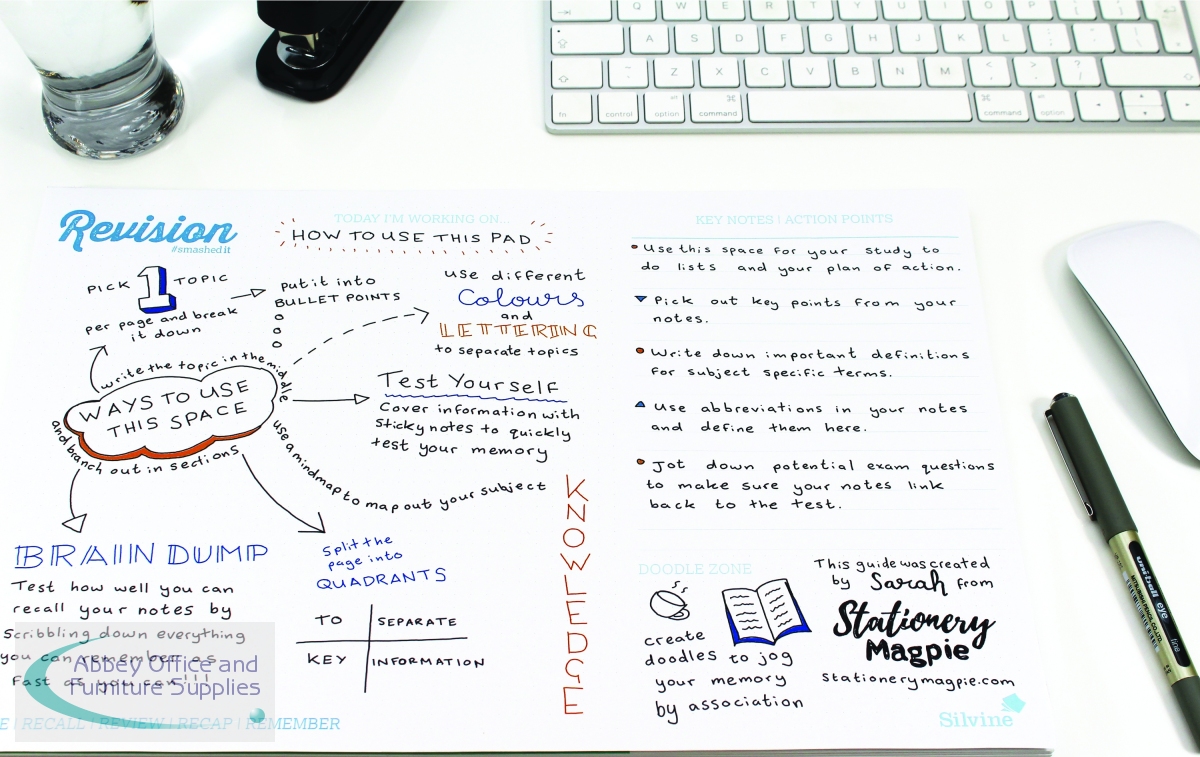 Q W E R T Y U I O P
A S D F G H J K L
Z X C V B N M
fn control option command command option
Revision
#smashedit
TODAY I'M WORKING ON...
HOW TO USE THIS PAD
PICK 1 TOPIC
per page and break
it down
put it into
BULLET POINTS
use different
Colours
and
LETTERING
to separate topics
write the topic in the middle
WAYS TO USE
THIS SPACE
and branch out in sections
Test Yourself
Cover information with
sticky notes to quickly
test your memory
use a mindmap to map out your subject
KNOWLEDGE
BRAIN DUMP
Test how well you can
recall your notes by
scribbling down everything
you can remember as
fast as you can!!!
Split the
page into
QUADRANTS
TO SEPARATE
KEY INFORMATION
Abbey Office and
Furniture Supplies
E | RECALL | REVIEW | RECAP | REMEMBER
KEY NOTES | ACTION POINTS
Use this space for your study to
do lists and your plan of action.
Pick out key points from your
notes.
Write down important definitions
for subject specific terms.
Use abbreviations in your notes
and define them here.
Jot down potential exam questions
to make sure your notes link
back to the test.
DOODLE ZONE
create
doodles to jog
your memory
by association
This guide was created
by Sarah from
Stationery
Magpie
stationerymagpie.com
Silvine
uniball eye fine